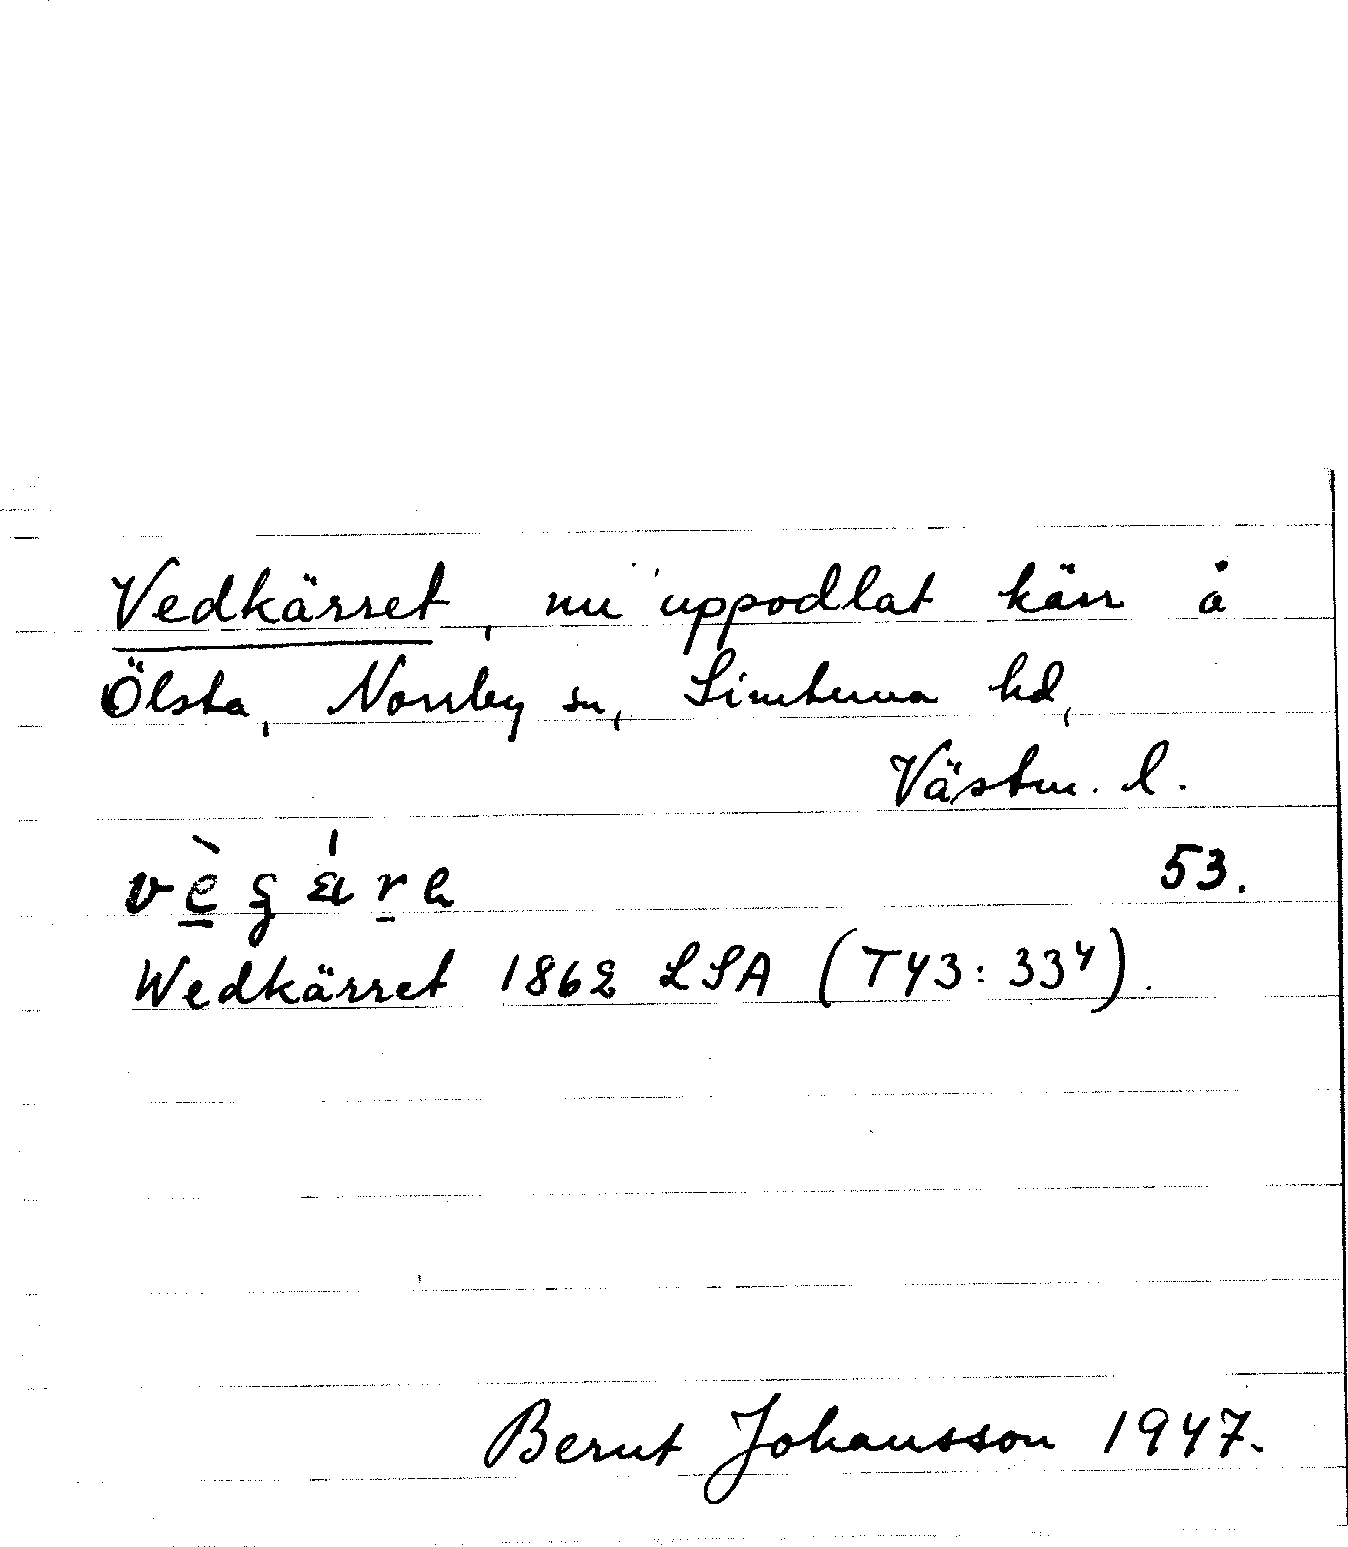 Vedkärret, nu uppodlat kärr å
Ölsta, Norrby sn, Simtuna hd,
Västm. l.
53.
Wedkärret 1862 LSA (T43:33⁴).
Bernt Johansson 1947.